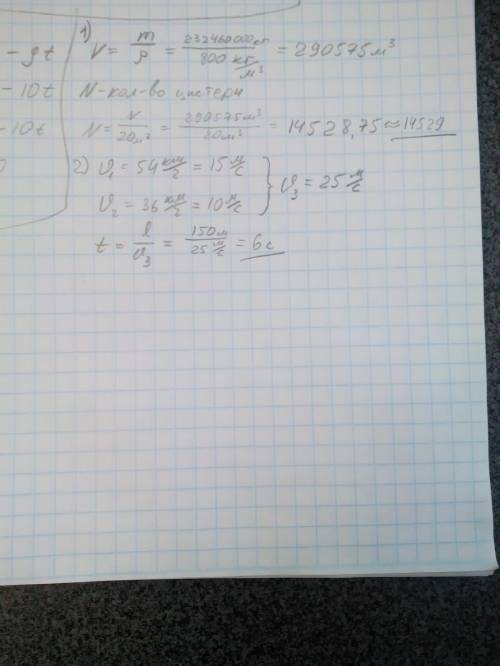 - gt
- 10t
- 10t
1) V = m/ρ = 232460000кг/800 кг/м³ = 290575м³
N-кол-во цистерн
N = V/20м³ = 290575м³/20м³ = 14528,75 ≈ 14529
2) v₁ = 54 км/ч = 15 м/с
v₂ = 36 км/ч = 10 м/с } v₃ = 25 м/с
t = l/v₃ = 150м/25 м/с = 6с